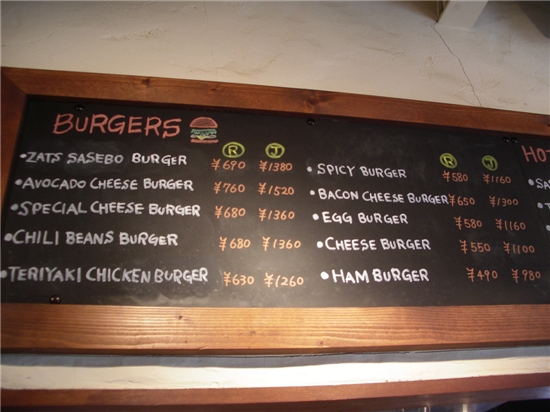 BURGERS
R J
•ZATS SASEBO BURGER ¥690 ¥1380
•AVOCADO CHEESE BURGER ¥760 ¥1520
•SPECIAL CHEESE BURGER ¥680 ¥1360
•CHILI BEANS BURGER ¥680 ¥1360
•TERIYAKI CHICKEN BURGER ¥630 ¥1260
R J
•SPICY BURGER ¥580 ¥1160
•BACON CHEESE BURGER ¥650 ¥1300
•EGG BURGER ¥580 ¥1160
•CHEESE BURGER ¥550 ¥1100
•HAM BURGER ¥490 ¥980